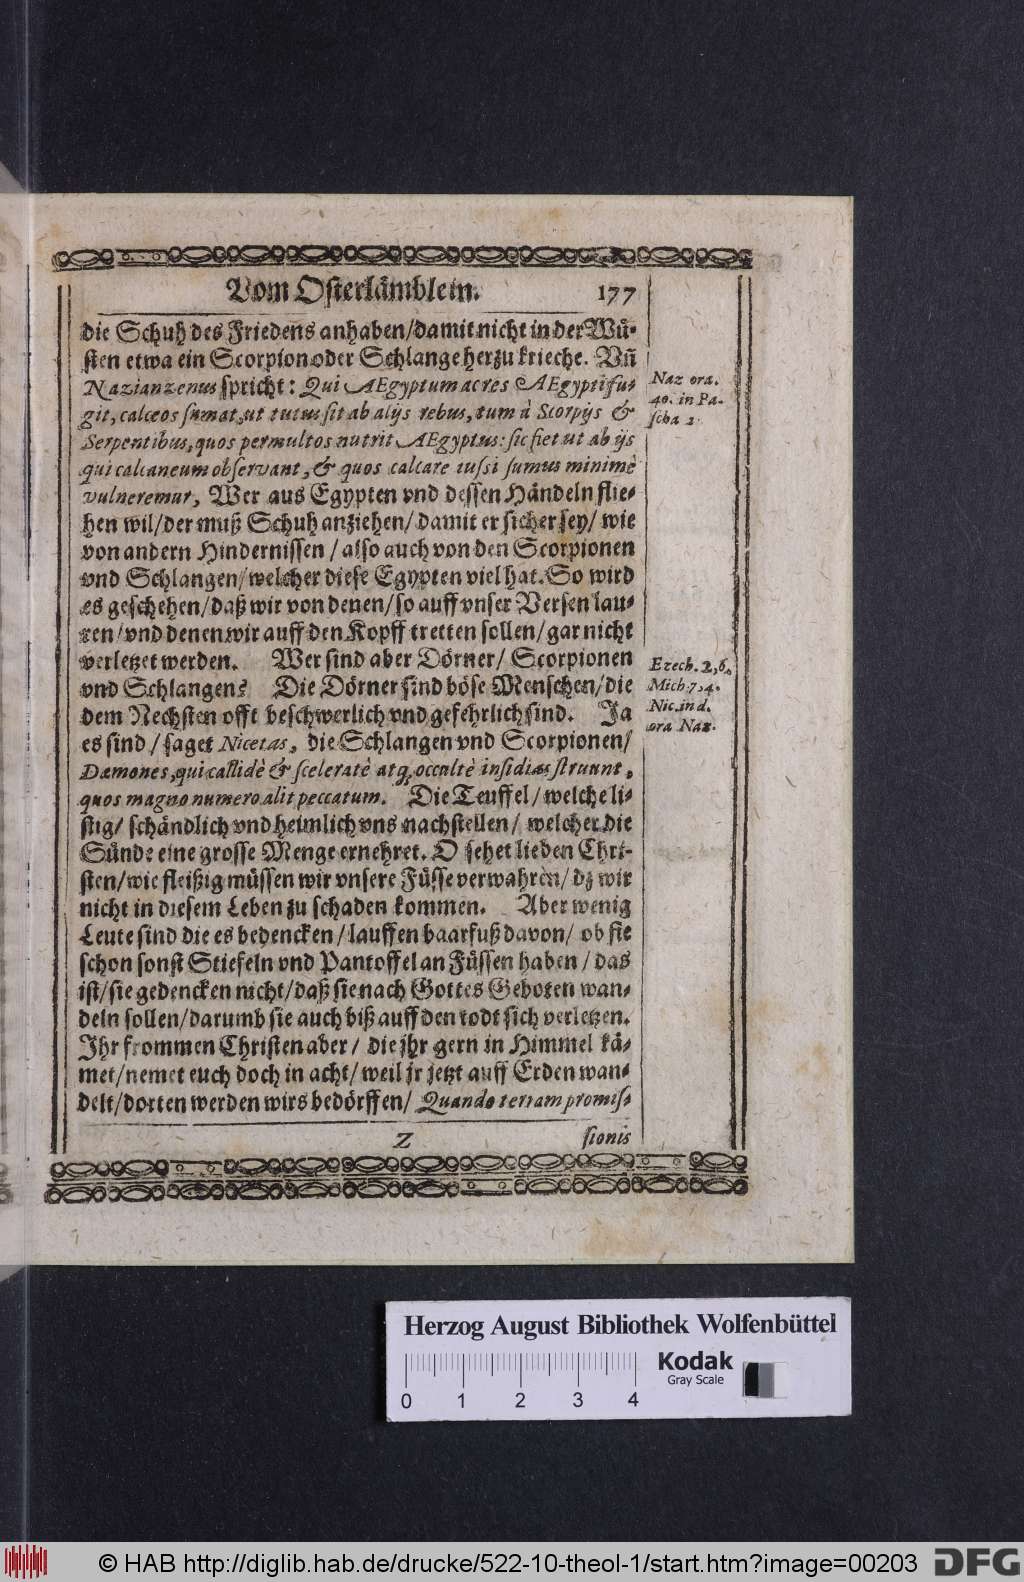 Vom Osterlämblein. 177
die Schuh des Friedens anhaben/damit nicht in der Wü-
sten etwa ein Scorpion oder Schlange herzu krieche. Vñ
Nazianzenus spricht: Qui Ægyptum ac res Ægypti fu-
git, calceos sumat, ut tutus sit ab alijs rebus, tum à Scorpijs &
Serpentibus, quos permultos nutrit Ægyptus: sic fiet ut ab ijs
qui calcaneum observant, & quos calcare iussi sumus minimè
vulneremur, Wer aus Egypten vnd dessen Händeln flie-
hen wil/der muß Schuh anziehen/damit er sicher sey/ wie
von andern Hindernissen / also auch von den Scorpionen
vnd Schlangen/welcher diese Egypten viel hat. So wird
es geschehen/daß wir von denen/so auff vnser Versen lau-
ren/vnd denen wir auff den Kopff tretten sollen/gar nicht
verletzet werden. Wer sind aber Dörner/ Scorpionen
vnd Schlangen? Die Dörner sind böse Menschen/die
dem Nechsten offt beschwerlich vnd gefehrlich sind. Ja
es sind / saget Nicetas, die Schlangen vnd Scorpionen/
Dæmones, qui callidè & sceleratè atq; occultè insidias struunt,
quos magno numero alit peccatum. Die Teuffel / welche li-
stig/ schändlich vnd heimlich vns nachstellen/ welcher die
Sünde eine grosse Menge ernehret. O sehet lieben Chri-
sten/wie fleißig müssen wir vnsere Füsse verwahren/ dz wir
nicht in diesem Leben zu schaden kommen. Aber wenig
Leute sind die es bedencken/lauffen baarfuß davon/ ob sie
schon sonst Stiefeln vnd Pantoffel an Füssen haben / das
ist/sie gedencken nicht/daß sie nach Gottes Geboten wan-
deln sollen/darumb sie auch biß auff den todt sich verletzen.
Ihr frommen Christen aber / die jhr gern in Himmel kä-
met/nemet euch doch in acht/ weil jr jetzt auff Erden wan-
delt/dorten werden wirs bedörffen/ Quando terram promis-
Z sionis
Naz ora.
40. in Pa-
scha 2.
Ezech. 2,6.
Mich 7,4.
Nic. in d.
ora Naz.
Herzog August Bibliothek Wolfenbüttel
Kodak
Gray Scale
0 1 2 3 4
© HAB http://diglib.hab.de/drucke/522-10-theol-1/start.htm?image=00203
DFG